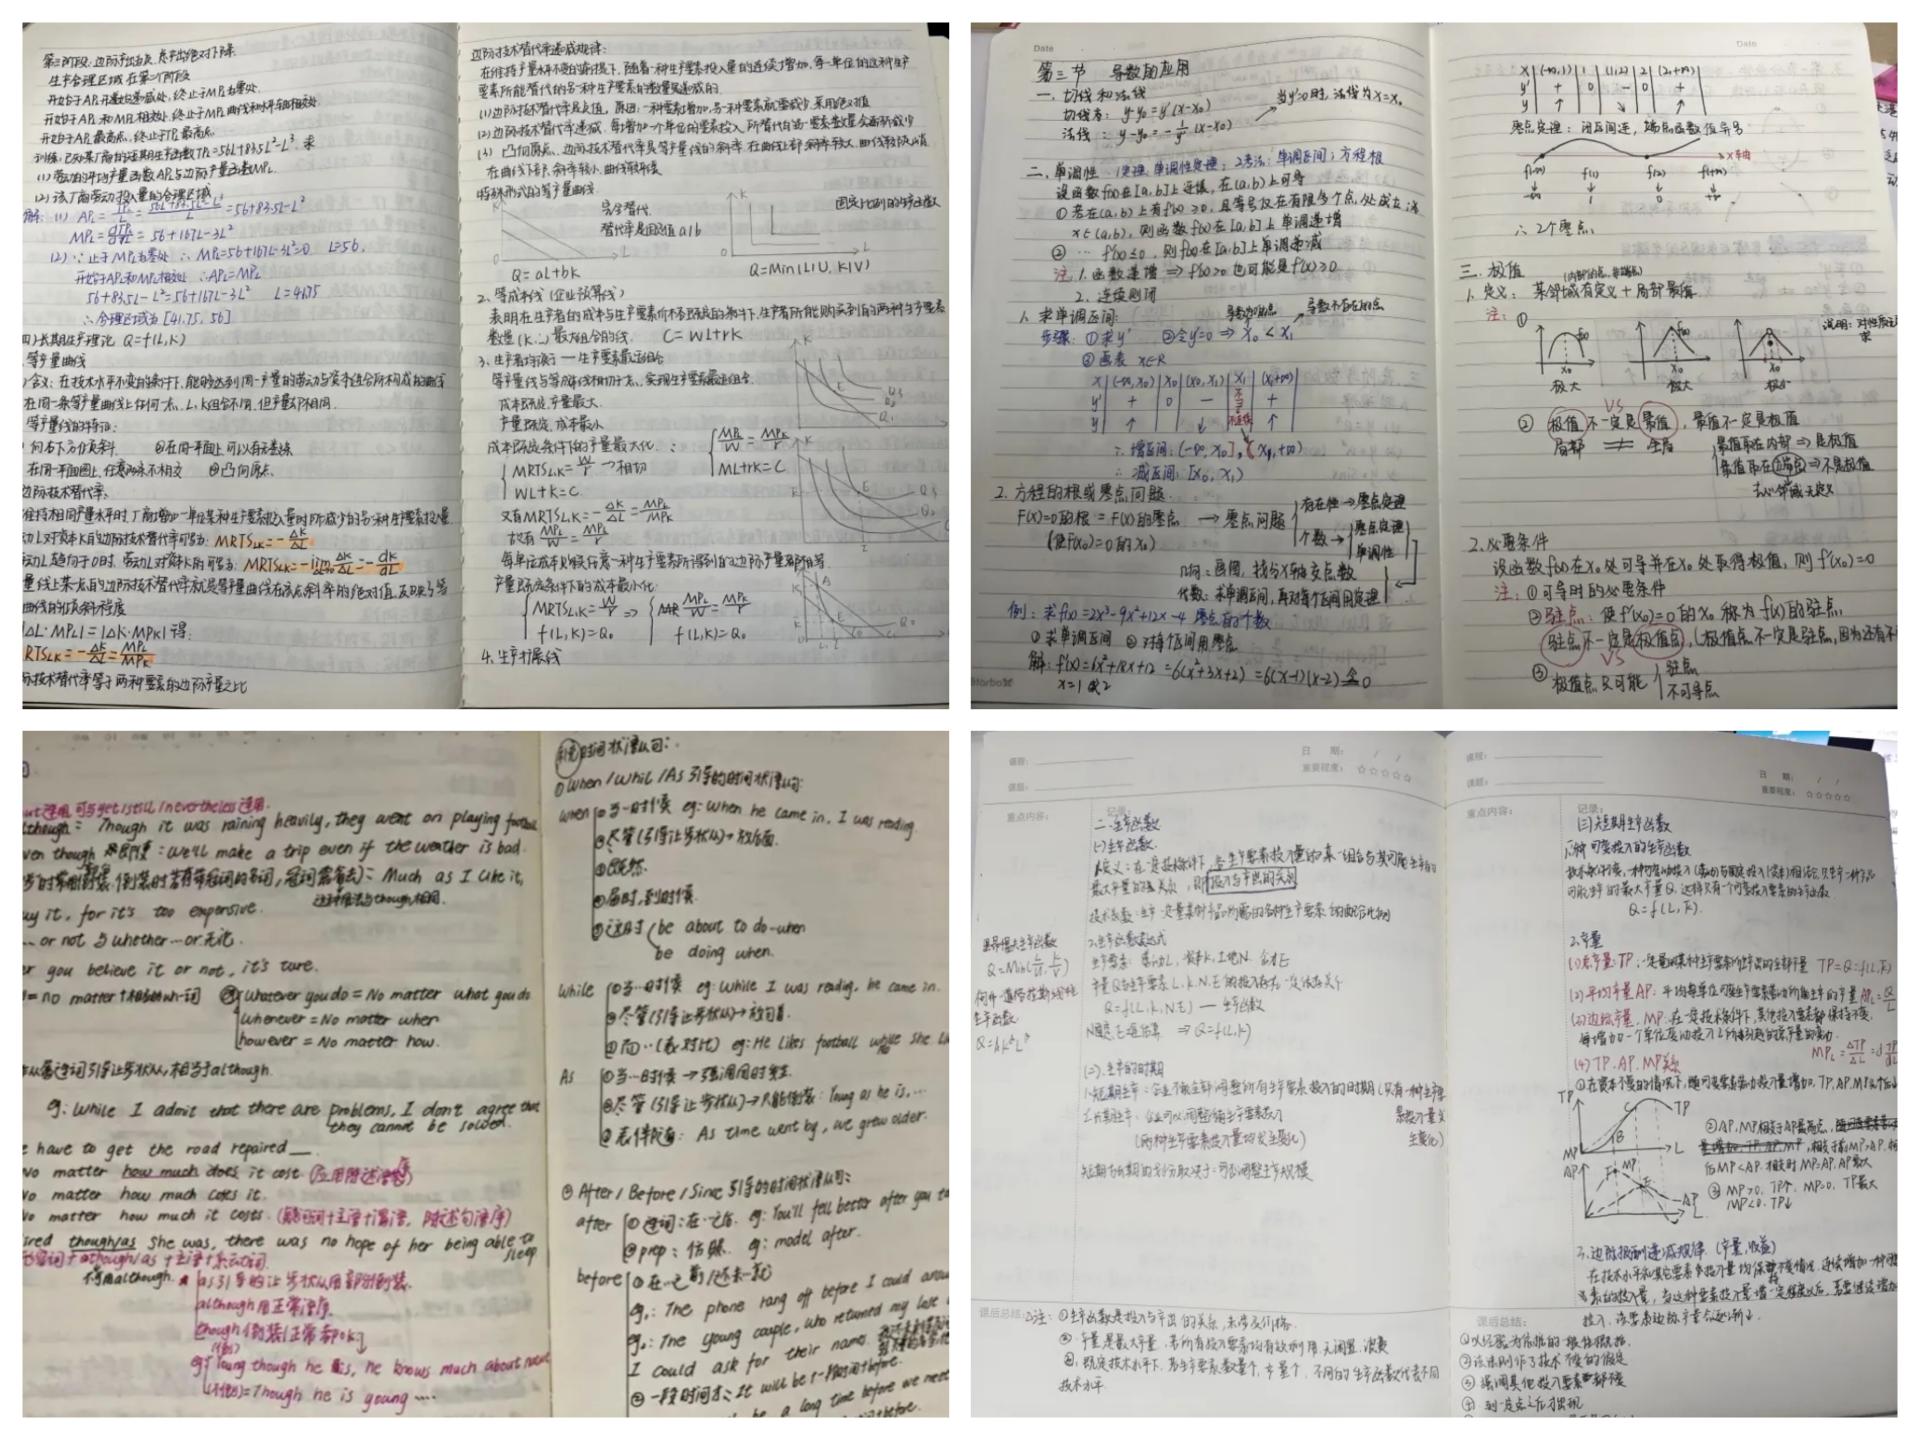 第三阶段:边际产出为负,总产出绝对下降.
生产合理区域在第二个阶段
开始于APL开始递减处,终止于MPL为零处.
开始于APL和MPL相交处,终止于MPL曲线和水平轴相交处.
开始于APL最高点,终止于TPL最高点.
训练:已知某厂商的短期生产函数TPL=56L+83.5L²-L³.求
(1)劳动的平均产量函数APL与边际产量函数MPL.
(2)该厂商劳动投入量的合理区域
解:(1) APL=TPL/L=56L+83.5L²-L³/L=56+83.5L-L²
MPL=dTPL/dL=56+167L-3L²
(2)∵止于MPL为零处 ∴MPL=56+167L-3L²=0 L=56.
开始于APL和MPL相交处 ∴APL=MPL
56+83.5L-L²=56+167L-3L² L=41.75
∴合理区域为[41.75,56]
长期生产理论 Q=f(L,K)
等产量曲线
含义:在技术水平不变的条件下,能够达到同一产量的劳动与资本组合所构成的曲线
在同一条等产量曲线上任何一点,L,K组合不同,但产量却相同.
等产量线的特征:
向右下方负倾斜 ②在同一平面上可以有无数条
在同一平面图上,任意两条不相交 ④凸向原点.
边际技术替代率:
维持相同产量水平时,厂商增加一单位某种生产要素投入量时所减少的另一种生产要素投入量
动L对资本K的边际技术替代率可写为: MRTSLK=-ΔK/ΔL
MRTSLK=-lim ΔK/ΔL=-dK/dL
量线上某一点的边际技术替代率就是等产量曲线在该点斜率的绝对值,
曲线的倾斜程度
|ΔL·MPL|=|ΔK·MPK|得:
RTSLK=-ΔK/ΔL=MPL/MPK
际技术替代率等于两种要素的边际产量之比
边际技术替代率递减规律:
在维持产量水平不变的前提下,随着一种生产要素投入量的连续增加,每一单位的这种生产
要素所能替代的另一种生产要素的数量是递减的.
(1)边际技术替代率是负值,原因:一种要素增加,另一种要素就要减少,采用绝对值
(2)边际技术替代率递减,每增加一个单位的要素投入,所替代的另一要素数量会逐渐减少
(3)凸向原点.边际技术替代率是等产量线的斜率.在曲线上部,斜率较大,曲线较陡峭
在曲线下部,斜率较小,曲线较平缓
特殊形式的等产量曲线.
完全替代.
替代率是固定值a/b
固定比例的生产函数
Q=aL+bK
Q=Min(L/U,K/V)
2、等成本线(企业预算线)
表明在生产者的成本与生产要素价格既定的条件下,生产者所能购买到的两种生产要素
数量(K,L)最大组合的线. C=WL+rK
3、生产者均衡——生产要素最适组合
等产量线与等成本线相切于一点,实现生产要素最适组合.
成本既定,产量最大.
产量既定,成本最小
成本既定条件下的产量最大化:
MRTSLK=W/r→相切
WL+rK=C
MPL/W=MPK/r
WL+rK=C
又有MRTSLK=-ΔK/ΔL=MPL/MPK
故有MPL/W=MPK/r
每单位成本购买任意一种生产要素所得到的边际产量都相等.
产量既定条件下的成本最小化:
MRTSLK=W/r ⇒ MPL/W=MPK/r
f(L,K)=Q₀ f(L,K)=Q₀
4、生产扩展线
Date
第三节 导数的应用
一.切线和法线
切线为: y-y₀=y'(x-x₀) 当y'=0时,法线为x=x₀
法线: y-y₀=-1/y'(x-x₀)
二.单调性 1定理:单调性定理;2考法:单调区间;方程根
设函数f(x)在[a,b]上连续,在(a,b)上可导
①若在(a,b)上有f'(x)≥0,且等号仅在有限多个点处成立,
x∈(a,b),则函数f(x)在[a,b]上单调递增
②… f'(x)≤0,则f(x)在[a,b]上单调递减
注:1.函数递增⇒f'(x)>0也可能是f'(x)≥0
2.连续则闭
1.求单调区间: 导数为0的点 导数不存在的点
步骤:①求y' ②令y'=0⇒x₀<x₁
③画表 x∈R
x (-∞,x₀) x₀ (x₀,x₁) x₁ (x₁,+∞)
y' + 0 - +
y ↑ ↓ ↑
∴增区间:(-∞,x₀],(x₁,+∞)
∴减区间:[x₀,x₁)
2.方程的根或零点问题
F(x)=0的根=F(x)的零点 → 零点问题
(使F(x₀)=0的x₀)
存在性→零点定理
个数→ 零点定理
单调性
几何:画图,找与X轴交点数
代数:求单调区间,再对每个区间用定理
例:求f(x)=2x³-9x²+12x-4零点的个数
①求单调区间 ②对每个区间用零点
解:f'(x)=6x²+18x+12=6(x²+3x+2)=6(x-1)(x-2)令0
x=1或2
Date
x (-∞,1) 1 (1,2) 2 (2,+∞)
y' + 0 - 0 +
y ↑ ↓ ↑
零点定理:闭区间连,端点函数值异号
x轴
f(-∞) f(1) f(2) f(+∞)
∴2个零点
三.极值 (内部的点,非端点)
1.定义:某邻域有定义+局部最值
注:①
极大 极大 极小
说明:对性质
②极值不一定是最值,最值不一定是极值
VS
局部 ≠ 全局
最值取在内部⇒是极值
最值取在端点⇒不是极值
去心邻域无定义
2.必要条件
设函数f(x)在x₀处可导并在x₀处取得极值,则f'(x₀)=0
注:①可导时的必要条件
②驻点:使f'(x₀)=0的x₀称为f(x)的驻点
驻点不一定是极值点,(极值点不一定是驻点,因为还有不
VS
③极值点只可能 驻点
不可导点
ut连用,可与yet/still/nevertheless连用.
lthough: Though it was raining heavily, they went on playing football
ven though 即使: We'll make a trip even if the weather is bad.
Much as I like it,
uy it, for it's too expensive.
这种用法与though相同.
... or not 与whether...or无论.
r you believe it or not, it's ture.
=no matter+相应的wh-词 Whatever you do = No matter what you do
Whenever = No matter when
however = No matter how.
从属连词引导让步状从,相当于although.
eg: While I admit that there are problems, I don't agree that
they cannot be solved.
have to get the road repaired __.
No matter how much does it cost.
No matter how much it costs.
No matter how much it costs. (疑问词+主语+谓语,陈述句语序)
ired though/as she was, there was no hope of her being able to
sleep
形容词+although/as+主语+系动词.
不用although.
as引导的让步状从用部分倒装.
although用正常语序.
though(倒装/正常都ok)
eg: Young though he is, he knows much about
=Though he is young ....
补充时间状语从句:
①When/Whil/As引导的时间状语从句:
when ①当…时候 eg: When he came in, I was reading.
②尽管(引导让步状从)→放后面.
③既然.
④届时,到时候.
⑤这时 be about to do-when
be doing when.
while ①当…时候 eg: While I was readig, he came in.
②尽管(引导让步状从)→放句首.
③而…(表对比) eg: He likes football while she
As ①当…时候→强调同时发生.
②尽管(引导让步状从)→只能倒装: Young as he is,...
③表伴随: As time went by, we grew older.
②After/Before/Since引导的时间状语从句:
after ①连词:在…之后. eg: You'll fell better after you
②prep: 仿照. eg: model after.
before ①在…之前/还未…就
eg₁: The phone rang off before I could
eg₂: The young couple, who returned my lost
I could ask for their name.
②一段时间前: It will be+一段时间+before.
be a long time before we meet
课程:
课题:
日 期: / /
重要程度: ☆☆☆☆☆
重点内容:
记录:
二.生产函数
(一)生产函数.
1.定义:在一定技术条件下,各生产要素投入量的某一组合与其可能生产的
最大产量的关系,即投入与产出的关系
技术系数:生产一定量某种产品所需的各种生产要素的配合比例
2.生产函数表达式
生产要素:劳动L,资本K,土地N,企才E
产量Q与生产要素L,K,N,E的投入存在一定依存关系
Q=f(L,K,N,E)——生产函数
⇒Q=f(L,K)
里昂惕夫生产函数
Q=Min(L/U,K/V)
柯布-道格拉斯线性
生产函数
(二).生产的时期
1.短期生产:企业不能全部调整所有生产要素投入的时期(只有一种生产要
素投入量变
(两种生产要素投入量均发生变化)
短期与长期的划分取决于:可否调整生产规模
课后总结:
注:①生产函数是投入与产出的关系,未涉及价格.
②产量是最大产量,是所有投入要素均有效利用,无闲置、浪费
③.既定技术水平下,各生产要素数量↑,产量↑,不同的生产函数代表不同
技术水平.
课程:
课题:
日 期: / /
重要程度: ☆☆☆☆☆
重点内容:
记录:
(三)短期生产函数
1.一种可变投入的生产函数
可能生产的最大产量Q,这样只有一个可变投入要素的生产函数
Q=f(L,K̄).
2.产量
(1)总产量:TP:一定量的某种生产要素所生产出的全部产量 TP=Q=f(L,K̄)
(2)平均产量AP:平均每单位可变生产要素劳动所能生产的产量APL=Q/L
(3)边际产量,MP.在一定技术条件下,其他投入要素都保持不变.
每增加一个单位劳动投入L所引起的总产量的变动
MPL=ΔTP/ΔL=dTP/dL
(4)TP.AP.MP关系
TP
L
MP
AP
②AP,MP相交于AP最高点,
后MP<AP.相交时MP=AP,AP最大
③MP>0,TP↑,MP=0,TP最大
MP<0,TP↓
3.边际报酬递减规律(产量,收益)
在技术水平和其它要素投入量均保持不变情况,连续增加一种可变
要素的投入量,当这种要素投入量增一定程度以后,若要继续增加
投入,该要素边际产量会逐渐↓.
课后总结:
①以经验为依据的一般性概括.
②该法则作了技术不变的假定
③强调其他投入要素都不变
④到一定点之后才出现